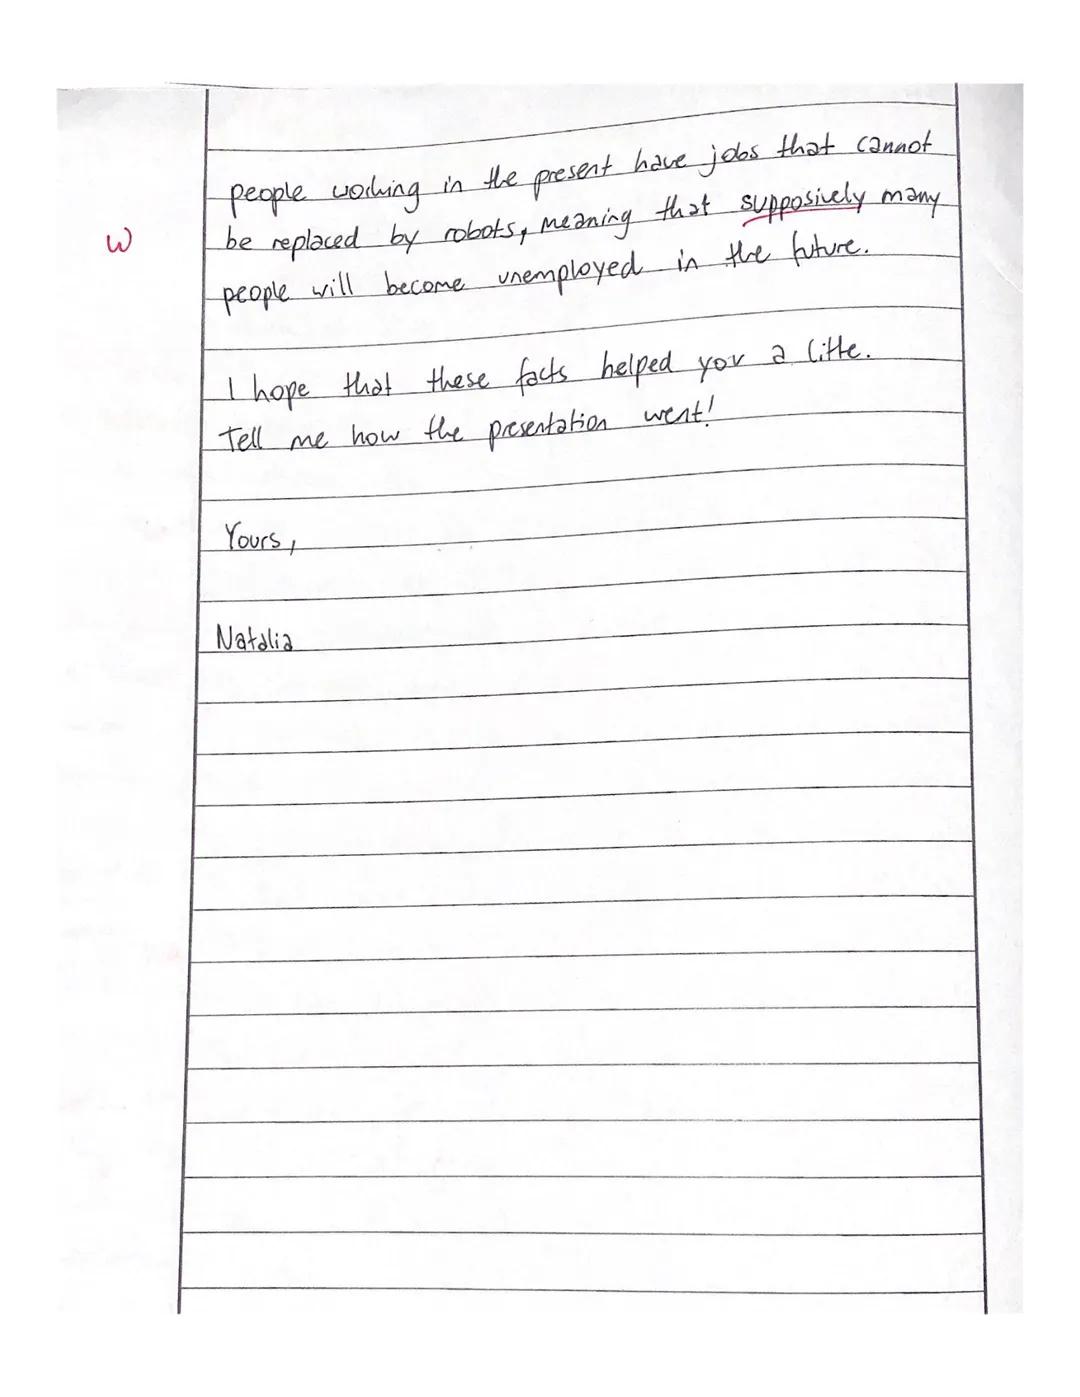 people working in the present have jobs that cannot
w be replaced by robots, meaning that supposively many
people will become unemployed in the future.
I hope that these facts helped you a litte.
Tell me how the presentation went!
Yours,
Natalia